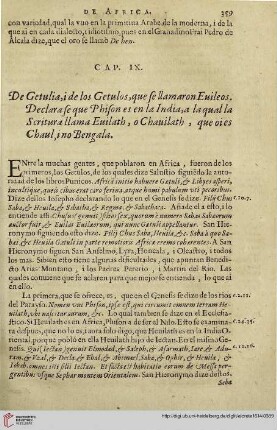 DE AFRICA. 359
con variedad, qual la vno en la primitiua Arabe de la moderna, i de la
que ai en cada dialecto, i idiotismo, pues en el Granadino frai Pedro de
Alcala dize, que el oro se llamò De heu.
CAP. IX.
De Getulia, i de los Getulos, que se llamaron Euileos.
Declarase que Phison es en la India, a la qual la
Scritura llama Euilath, o Chauilath, que oi es
Chaul, i no Bengala.
ENtre la muchas gentes, que poblaron en Africa, fueron de los
primeros, los Getulos, de los quales dize Salustio siguiẽdo la auto
ridad de los libros Punicos. Africã initio habuere Getuli, & Libyes asperi,
incultique, queis cibus erat caro ferina atque humi pabulum vti pecoribus.
Dize destos Iosefo declarando lo que en el Genesis se dize. Filij Chus
Saba, & Heuila, & Sabatha, & Regma, & Sabathaca. Añade el a esto, i lo
entiende assi. Chusaei generis
auctor fuit, & Euilas Euilaeorum, qui nunc Getuli appellantur. San Hie-
ronymo siguiendo esto dize. Filij Chus Saba, Heuila, &c. a quo Sabei Sa
bae, & Heuila Getuli in parte remotiora Africa eremo cohaerentes. A San
Hieronymo siguen San Anselmo, Lyra, i Oleastro, i todos
los mas. Sobre esto tiene algunas dificultades, que apuntan Benedi-
cto Arias Montano, i los Padres Pererio, i Martin del Rio. Las
quales conuiene que se aclaren para que mejor se entienda, lo que en
el ai.
La primera, que se ofrece, es, que en el Genesis se dize de los rios
del Paraiso. Nomen vni Phison, ipse est, qui circuit omnem terram He-
uilath, vbi nascitur aurum, &c. Lo qual tambien se dize en el Ecclesia-
stico. Si Heuilath es en Africa, Phison a de ser el Nilo. Esto se examina-
ra despues, que no lo es. Lo que agora es necessario es en la India O-
riental, porque poblò en ella Heuilath hijo de Iectan. En el mismo Ge-
nesis. Qui Iectan genuit Elmodad, & Saleph, & Asarmoth, Iare, & Adu-
ram, & Vzal, & Decla, & Ebal, & Abimael, Saba, & Ophir, & Heuila, &
Iobab, omnes isti filij Iectan. Et facta est habitatio eorum de Messa per-
gentibus vsque Sephar montem Orientalem. San Hieronymo dize destos.
Saba